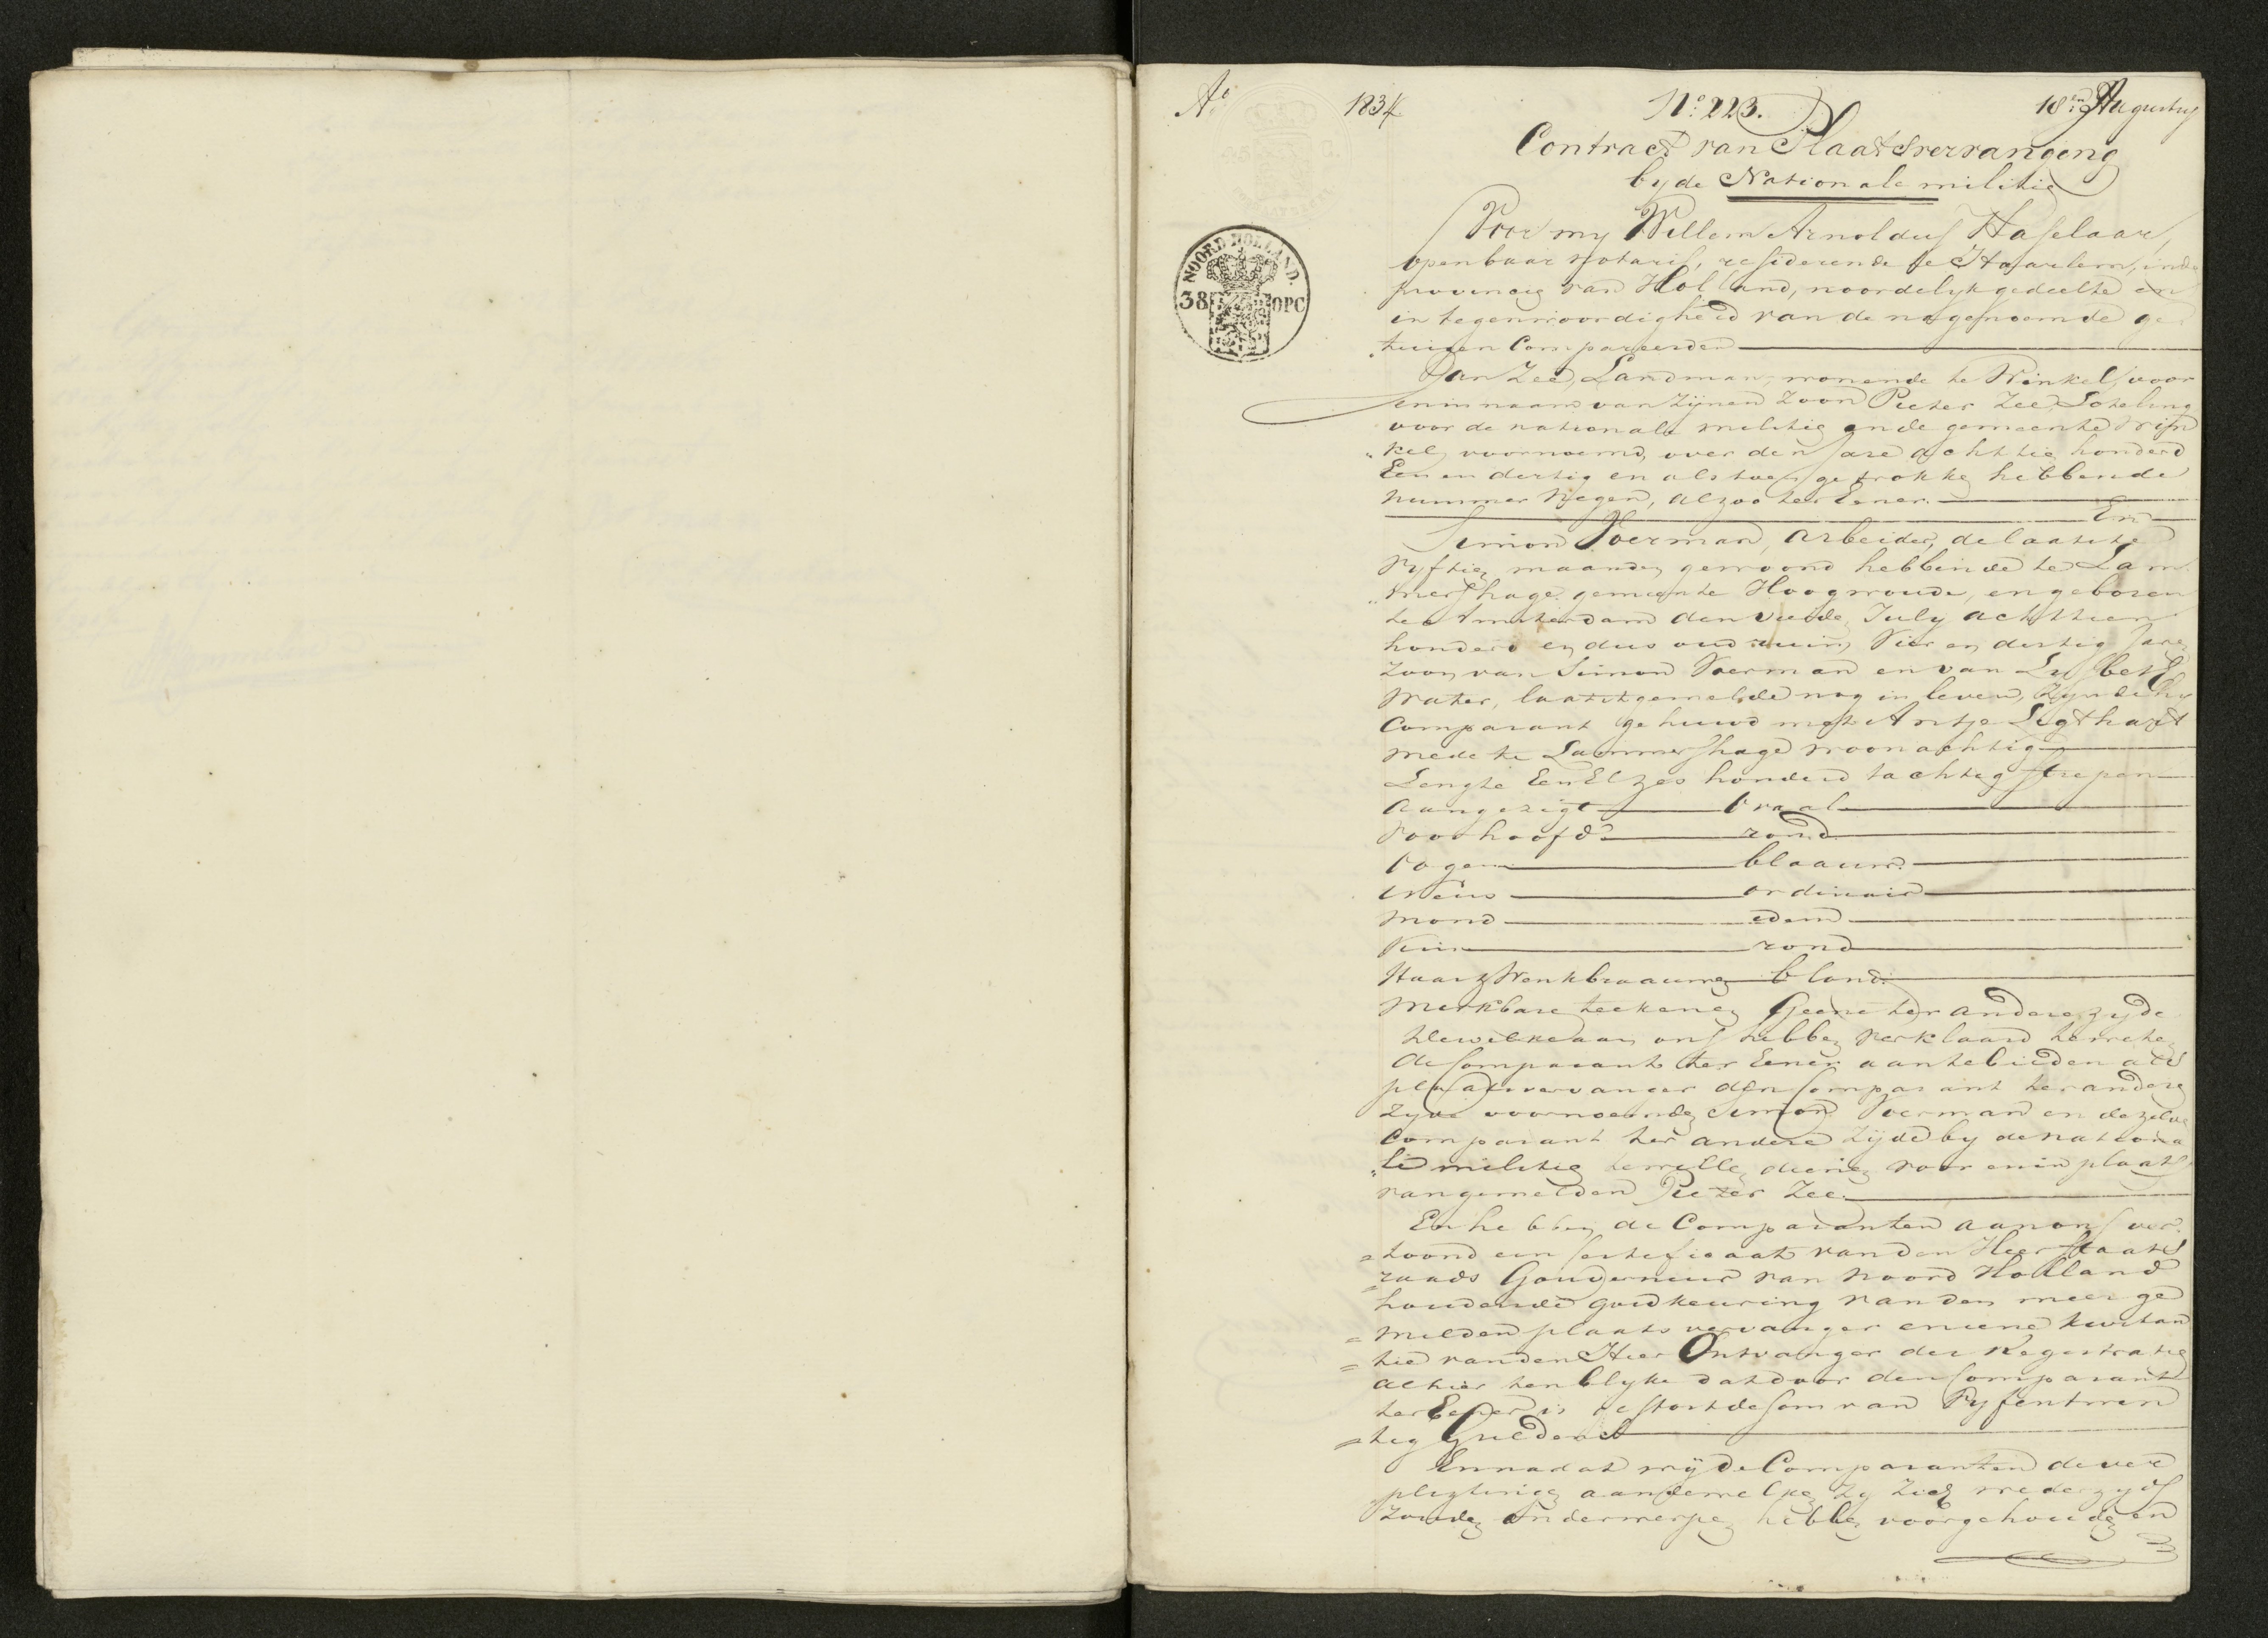 Ao 1834 No. 223. 18en Augustus
Contract van Plaatsvervanging
by de Nationale militie
NOORD HOLLAND.
38 OPC
Voor my Willem Arnoldus Haselaar,
openbaar notaris, resideerende te Haarlem, in de
provincie van Holland, noordelyk gedeelte en
in tegenwoordigheid van de nagenoemde ge
„tuigen Compareerden
Jan Zee, Landman, wonende te Winkel, voor
en in naam van zijnen zoon Pieter Zee, Loteling
voor de nationale militie in de gemeente Win
„kel, voornoemd, over den jare achttien honderd
Een en dertig en als toen getrokken hebbende
nummer Negen, alzoo ter Eener.
En
Simon Voerman, arbeider, de laatste
vyftien maanden gewoond hebbende te Lam
„mershage gemeente Hoogwoude, en geboren
te Amsterdam den vierde July achttien
honderd en dus oud ruim vier en dertig jare
zoon van Simon Voerman en van Lysbeth
Water, laatstgemelde nog in leven, zynde de
Comparant gehuwd met Antje Ligthart
mede te Lammershage woonachtig
Lengte Een El zes honderd tachtig strepen
Aangezigt ovaal
Voorhoofd rond
Oogen blaauw
Neus ordinair
Mond idem
Kin rond
Haar & Wenkbraauwen blond
Merkbare teekenen Geene ter andere zyde
Dewelke aan ons hebben verklaard te weten
de Comparant ter Eener aantebieden als
plaatsvervanger den Comparant ter andere
zyde voornoemde Simon Voerman en dezelve
Comparant ter andere zijde by de nationa
„le militie te willen dienen voor en in plaats
van gemelden Pieter Zee.
En hebben de Comparanten aan ons ver
=toond een certificaat van den Heer Staats
=raads Gouverneur van Noord Holland
houdende goedkeuring van den meer ge
=melden plaatsvervanger en eene kwitan
=tie van den Heer Ontvanger der Registratie
alhier ten blyke dat door den Comparant
ter Eener is gestort de som van Vyfentwin
=tig Guldens
En nadat wij de Comparanten de ver
pligtingen aan dewelke zy zich wederzyds
zouden onderwerpen hebben voorgehouden en